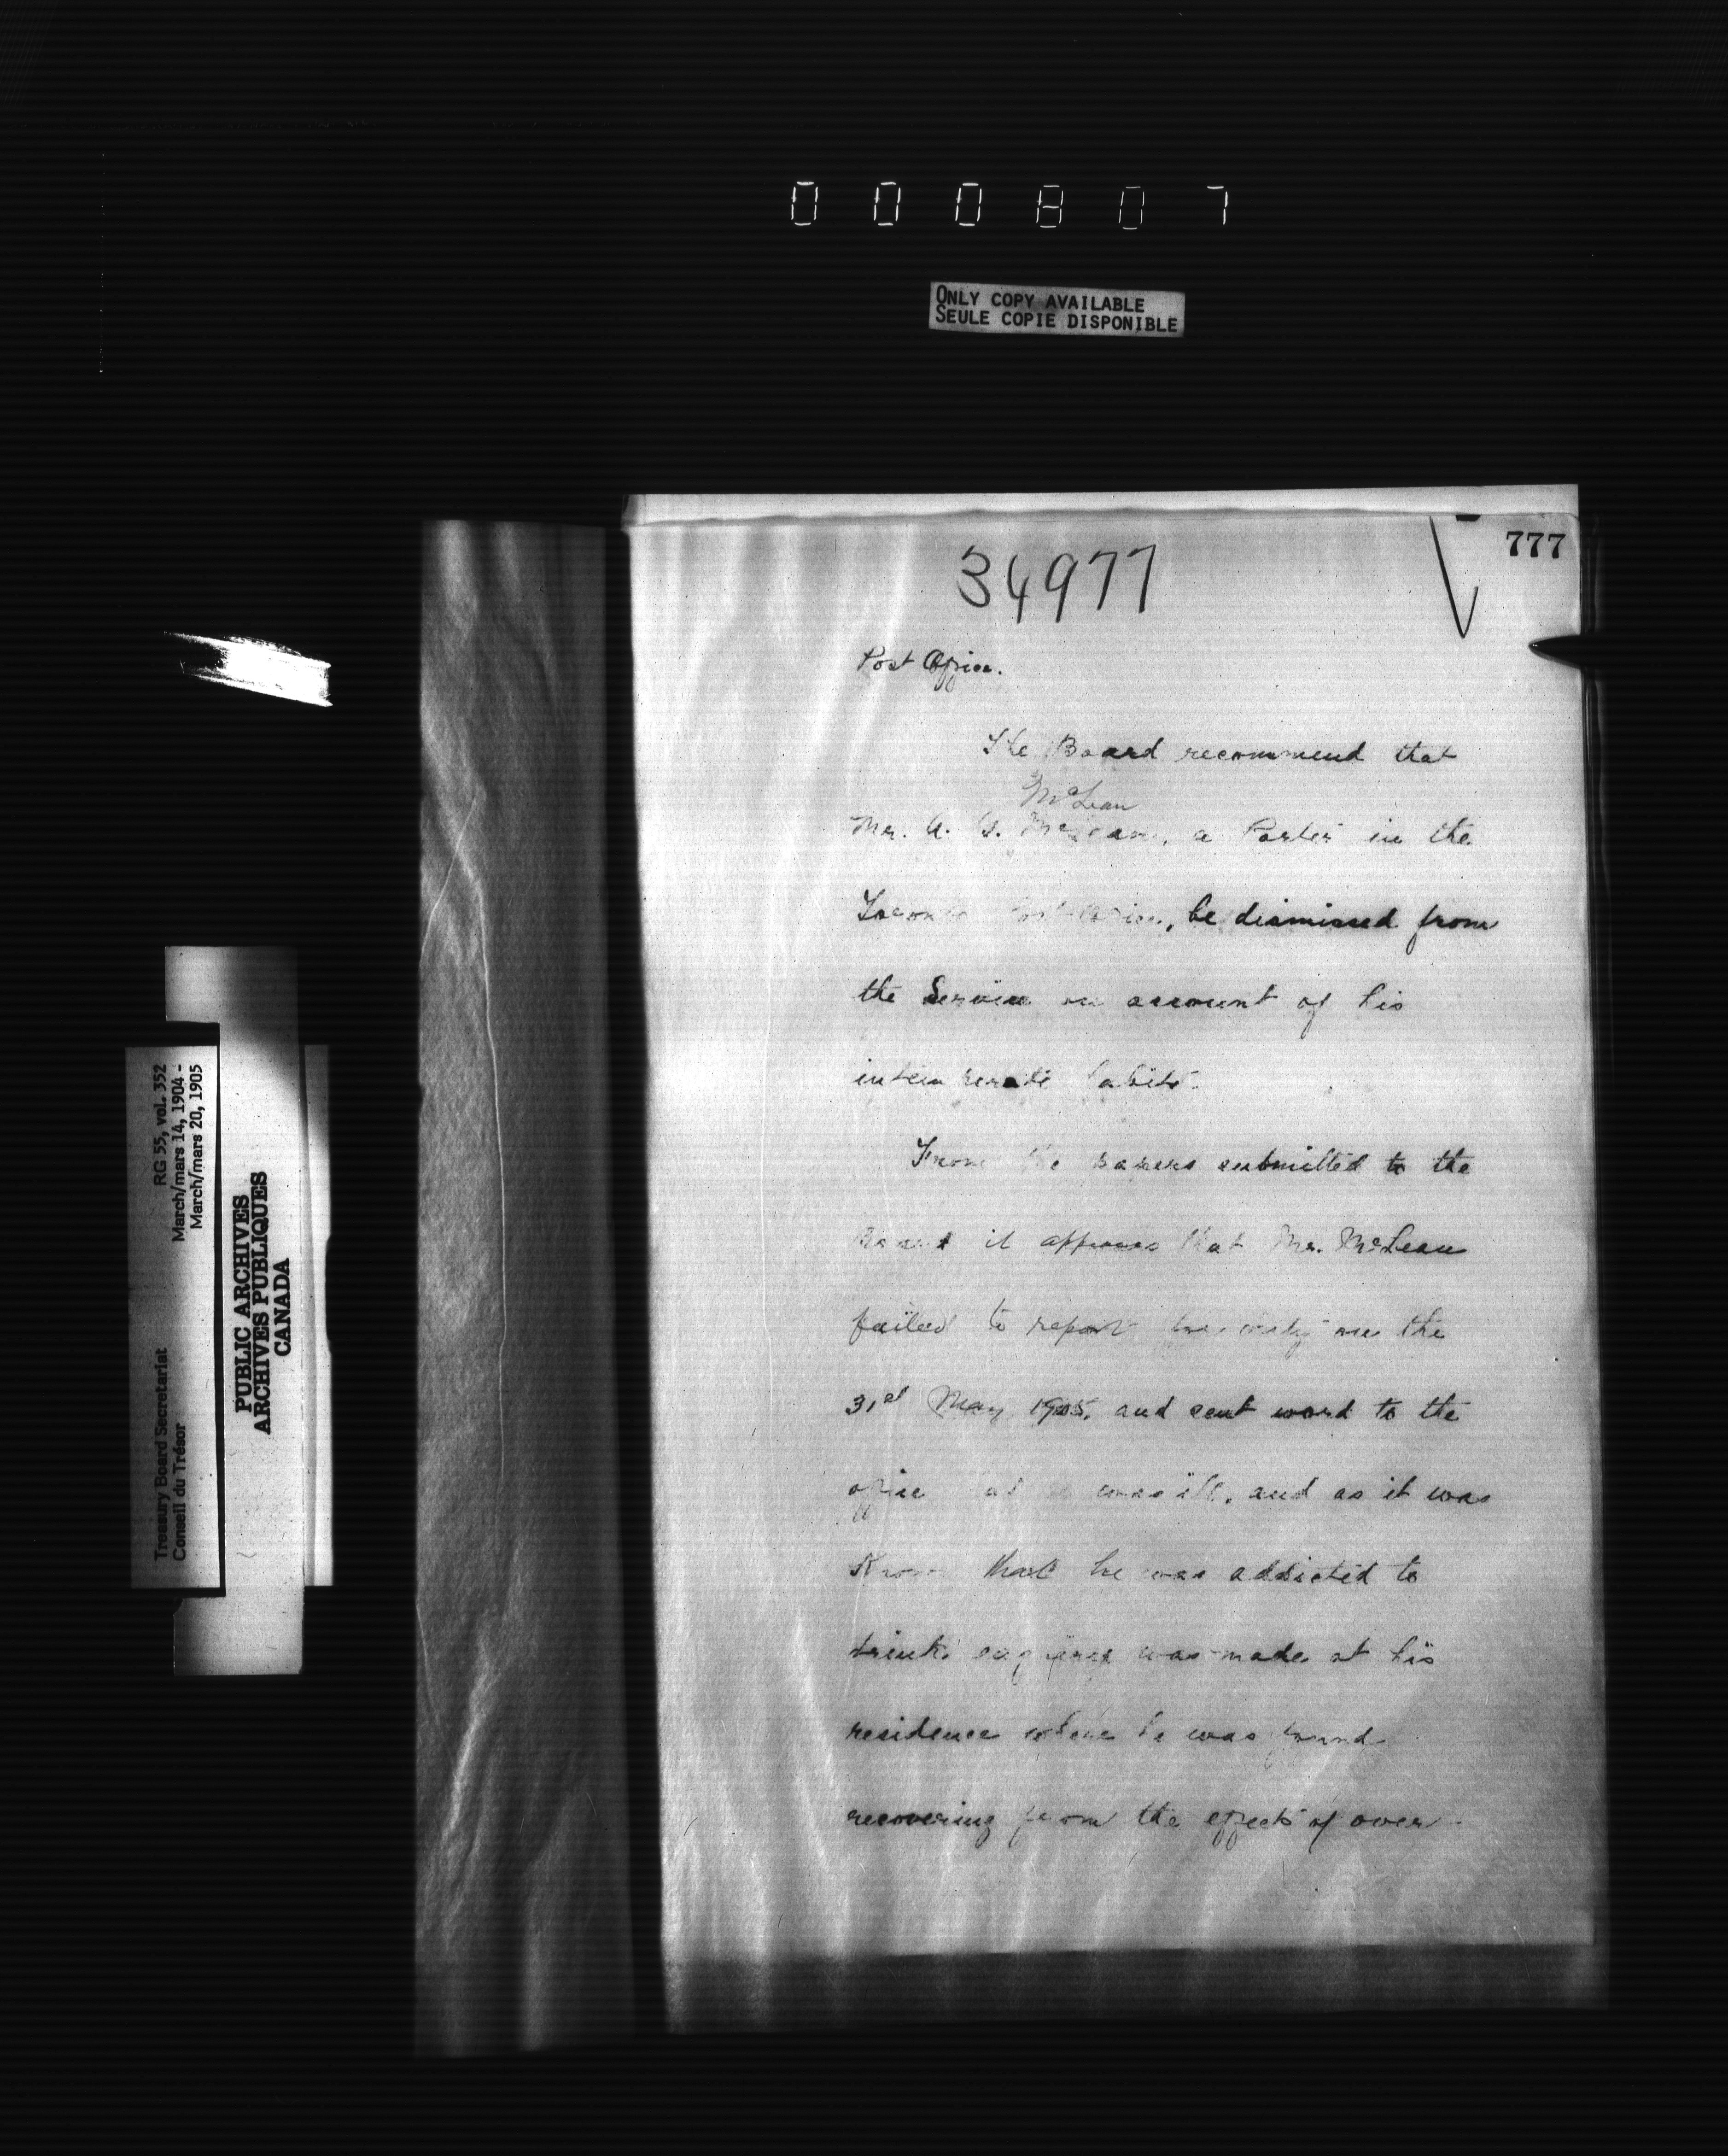 000807
ONLY COPY AVAILABLE
SEULE COPIE DISPONIBLE
777
34977
Post Office.
The Board recommend that
McLean
Mr. A. G. McLean, a Porter in the
Toronto Post Office, be dismissed from
the Service on account of his
intemperate habits.
From the papers submitted to the
Board it appears that Mr. McLean
failed to report for duty on the
31st May 1905, and sent word to the
office that he was ill, and as it was
Known that he was addicted to
drink enquiry was made at his
residence where he was found
recovering from the effects of over
RG 55, vol. 352
March/mars 14, 1904 -
March/mars 20, 1905
Treasury Board Secretariat
Conseil du Trésor
PUBLIC ARCHIVES
ARCHIVES PUBLIQUES
CANADA